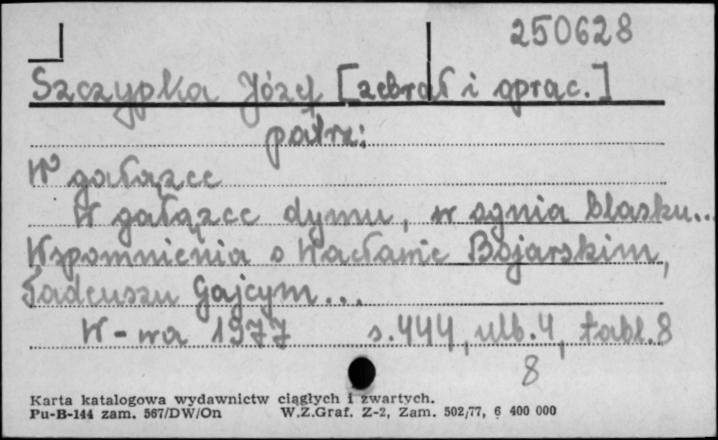 250628
Szczypka Józef [zebrał i oprac.]
patrz:
W gałązce
W gałązce dymu, w ognia blasku...
Wspomnienia o Wacławie Bojarskim,
Tadeuszu Gajcym...
W-wa 1977 s. 444, ulb. 4, tabl. 8
8
Karta katalogowa wydawnictw ciągłych i zwartych.
Pu-B-144 zam. 567/DW/On W.Z.Graf. Z-2, Zam. 502/77, 6 400 000